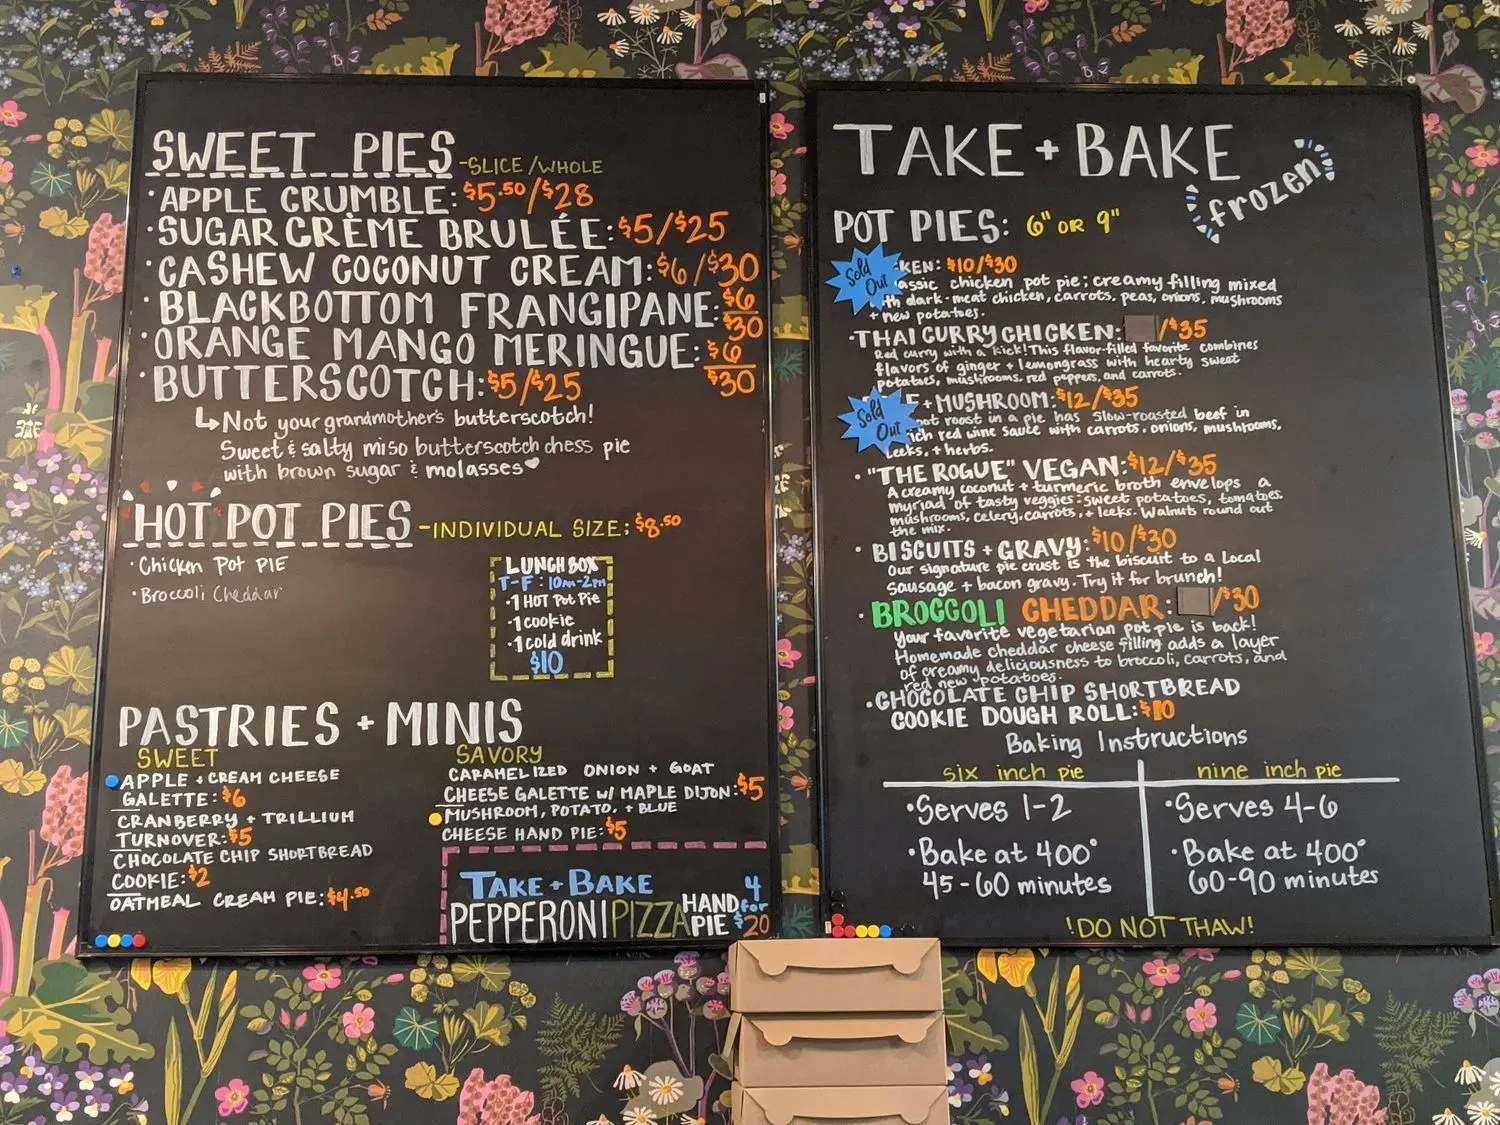 SWEET PIES -SLICE/WHOLE
·APPLE CRUMBLE: $5.50/$28
·SUGAR CRÈME BRULÉE: $5/$25
·CASHEW COCONUT CREAM: $6/$30
·BLACKBOTTOM FRANGIPANE: $6/$30
·ORANGE MANGO MERINGUE: $6/$30
·BUTTERSCOTCH: $5/$25
↳Not your grandmother's butterscotch!
Sweet & salty miso butterscotch chess pie
with brown sugar & molasses♥
HOT POT PIES -INDIVIDUAL SIZE: $8.50
·Chicken Pot PIE
·Broccoli Cheddar
LUNCH BOX
T-F: 10AM-2PM
·1 HOT Pot Pie
·1 cookie
·1 cold drink
$10
PASTRIES + MINIS
SWEET
APPLE + CREAM CHEESE
GALETTE: $6
CRANBERRY + TRILLIUM
TURNOVER: $5
CHOCOLATE CHIP SHORTBREAD
COOKIE: $2
OATMEAL CREAM PIE: $4.50
SAVORY
CARAMELIZED ONION + GOAT
CHEESE GALETTE W/ MAPLE DIJON: $5
MUSHROOM, POTATO, + BLUE
CHEESE HAND PIE: $5
TAKE + BAKE
PEPPERONI PIZZA HAND PIE 4 for $20
TAKE + BAKE
frozen
POT PIES: 6" OR 9"
Sold Out
KEN: $10/$30
assic chicken pot pie; creamy filling mixed
th dark-meat chicken, carrots, peas, onions, mushrooms
+ new potatoes.
·THAI CURRY CHICKEN: /$35
Red curry with a kick! This flavor-filled favorite combines
flavors of ginger + lemongrass with hearty sweet
potatoes, mushrooms, red peppers, and carrots.
Sold Out
F + MUSHROOM: $12/$35
ot roast in a pie has slow-roasted beef in
ich red wine sauce with carrots, onions, mushrooms,
leeks, + herbs.
·"THE ROGUE" VEGAN: $12/$35
A creamy coconut + turmeric broth envelops a
myriad of tasty veggies: sweet potatoes, tomatoes,
mushrooms, celery, carrots, + leeks. Walnuts round out
the mix.
·BISCUITS + GRAVY: $10/$30
Our signature pie crust is the biscuit to a local
sausage + bacon gravy. Try it for brunch!
·BROCCOLI CHEDDAR: /$30
Your favorite vegetarian pot pie is back!
Homemade cheddar cheese filling adds a layer
of creamy deliciousness to broccoli, carrots, and
red new potatoes.
·CHOCOLATE CHIP SHORTBREAD
COOKIE DOUGH ROLL: $10
Baking Instructions
six inch pie
·Serves 1-2
·Bake at 400°
45-60 minutes
nine inch pie
·Serves 4-6
·Bake at 400°
60-90 minutes
!DO NOT THAW!